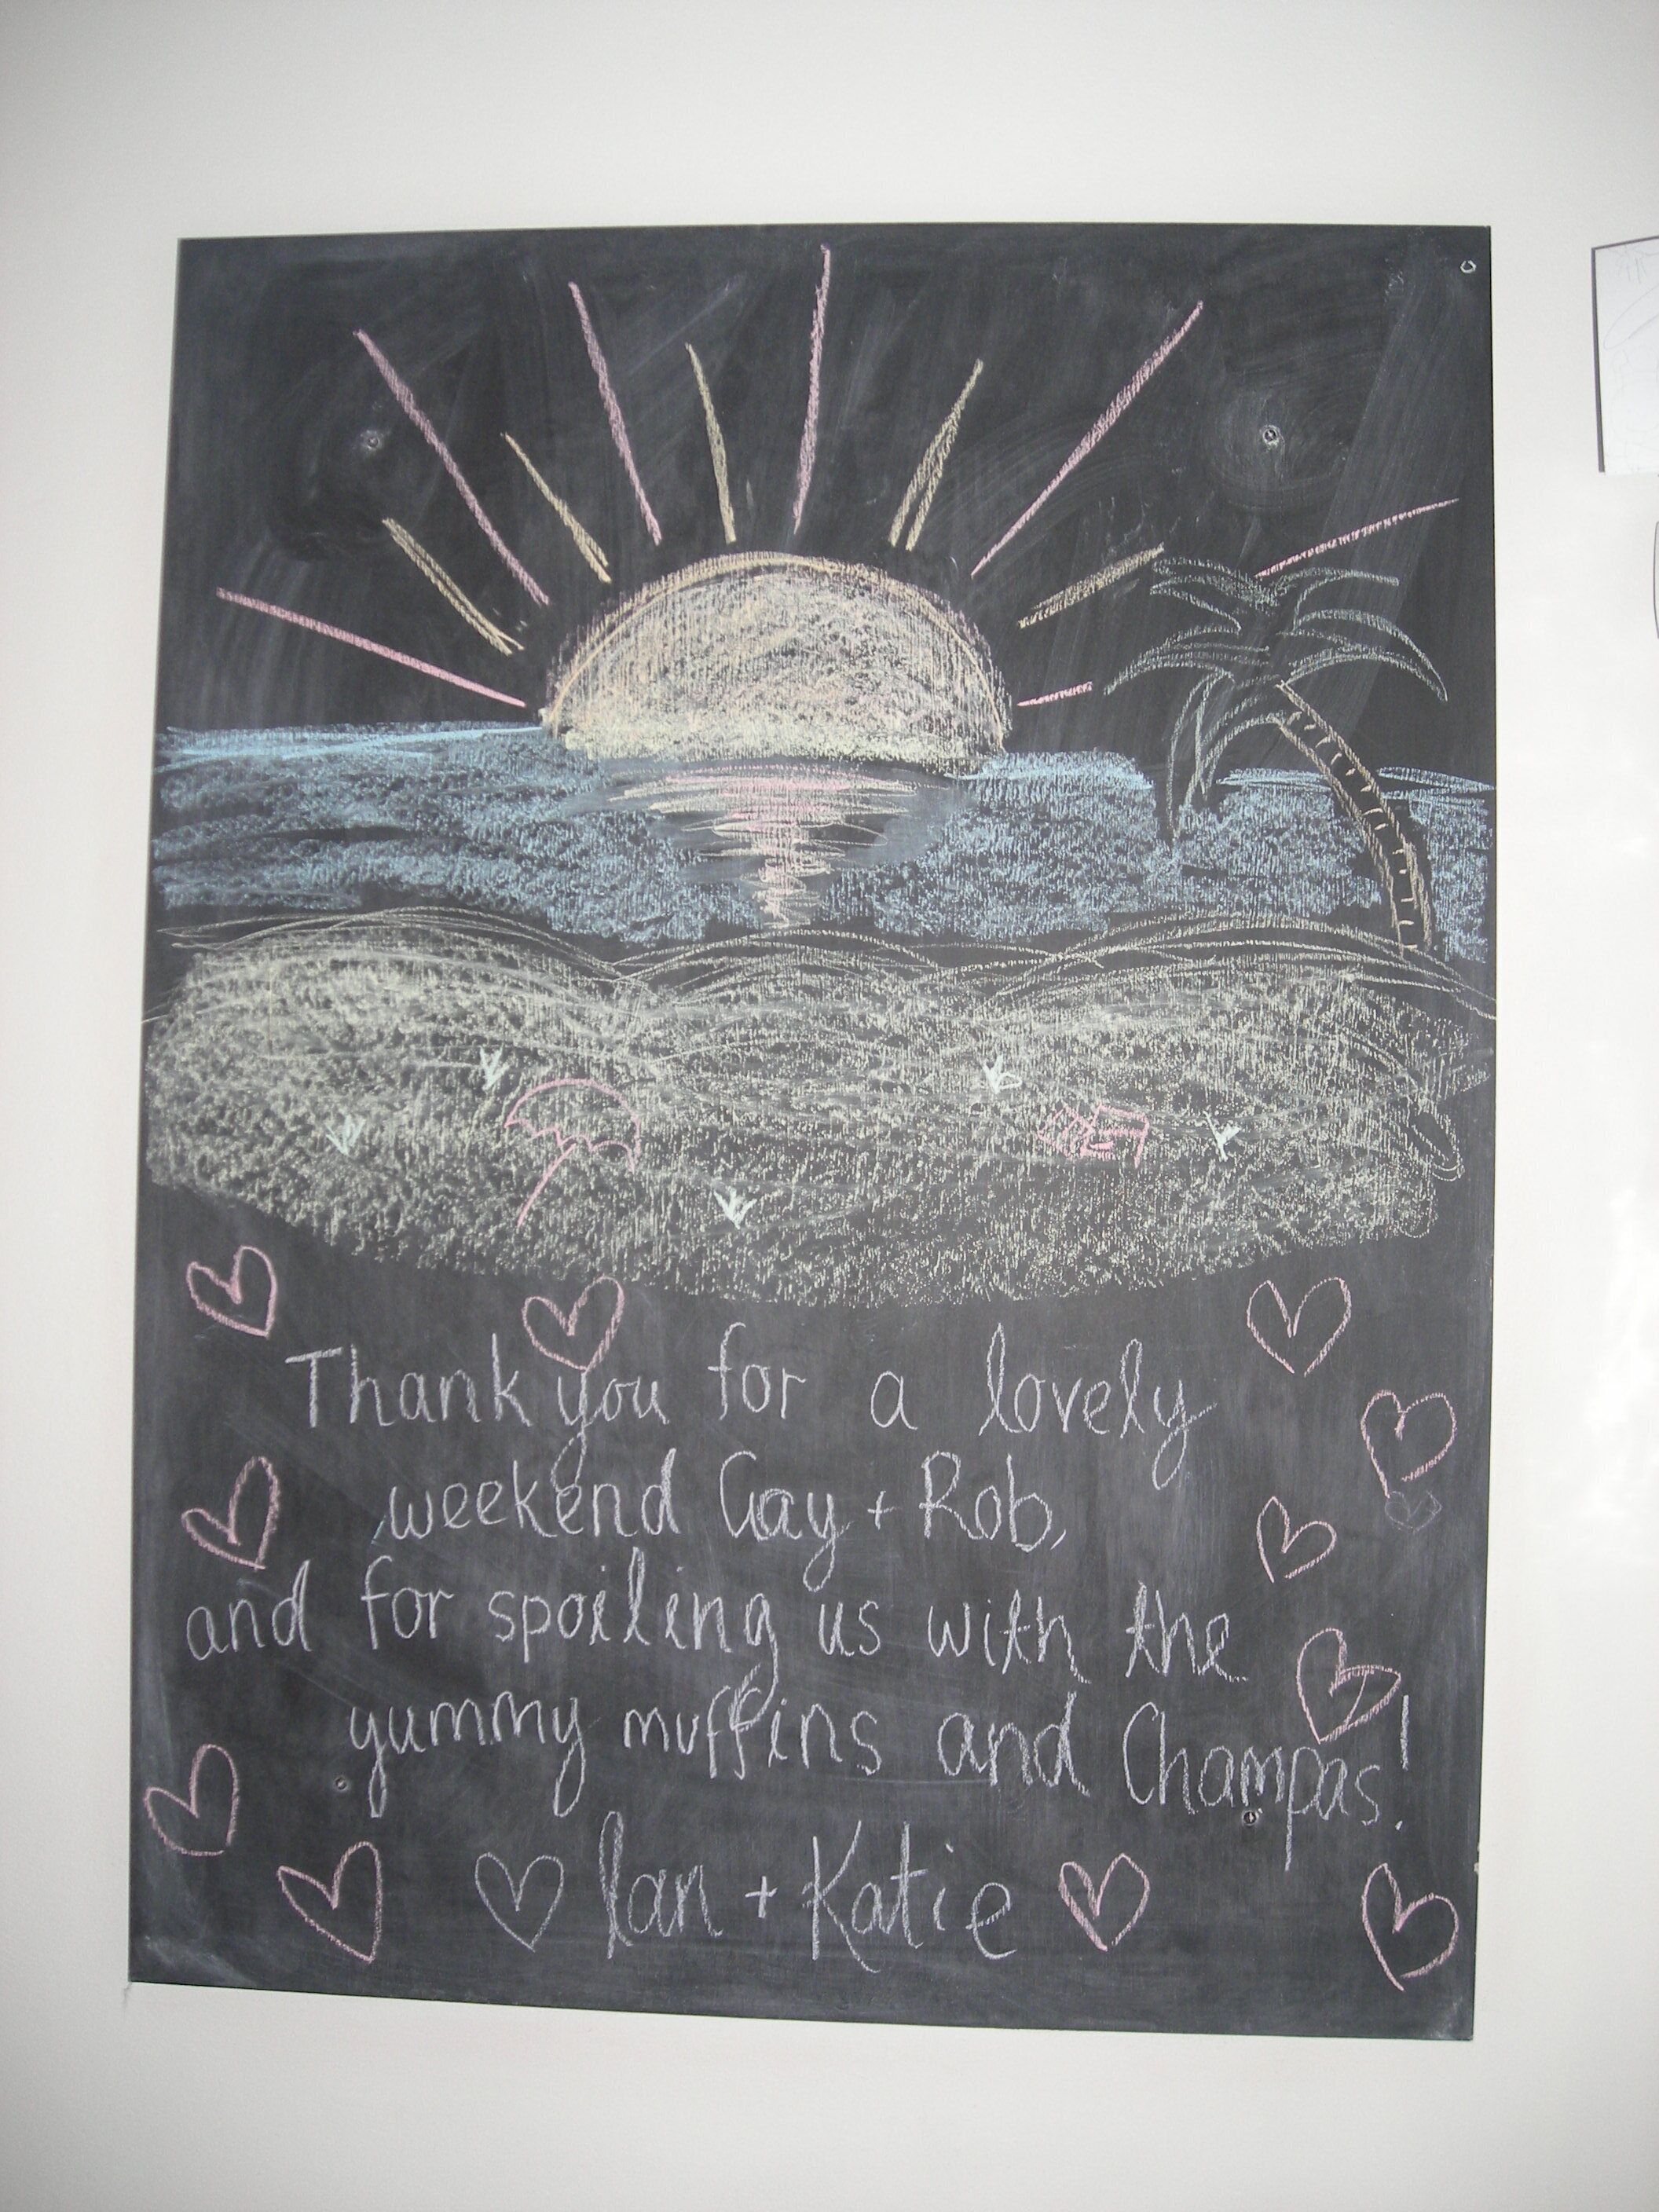 Thank you for a lovely
weekend Gay + Rob,
and for spoiling us with the
yummy muffins and Champas!
Ian + Katie